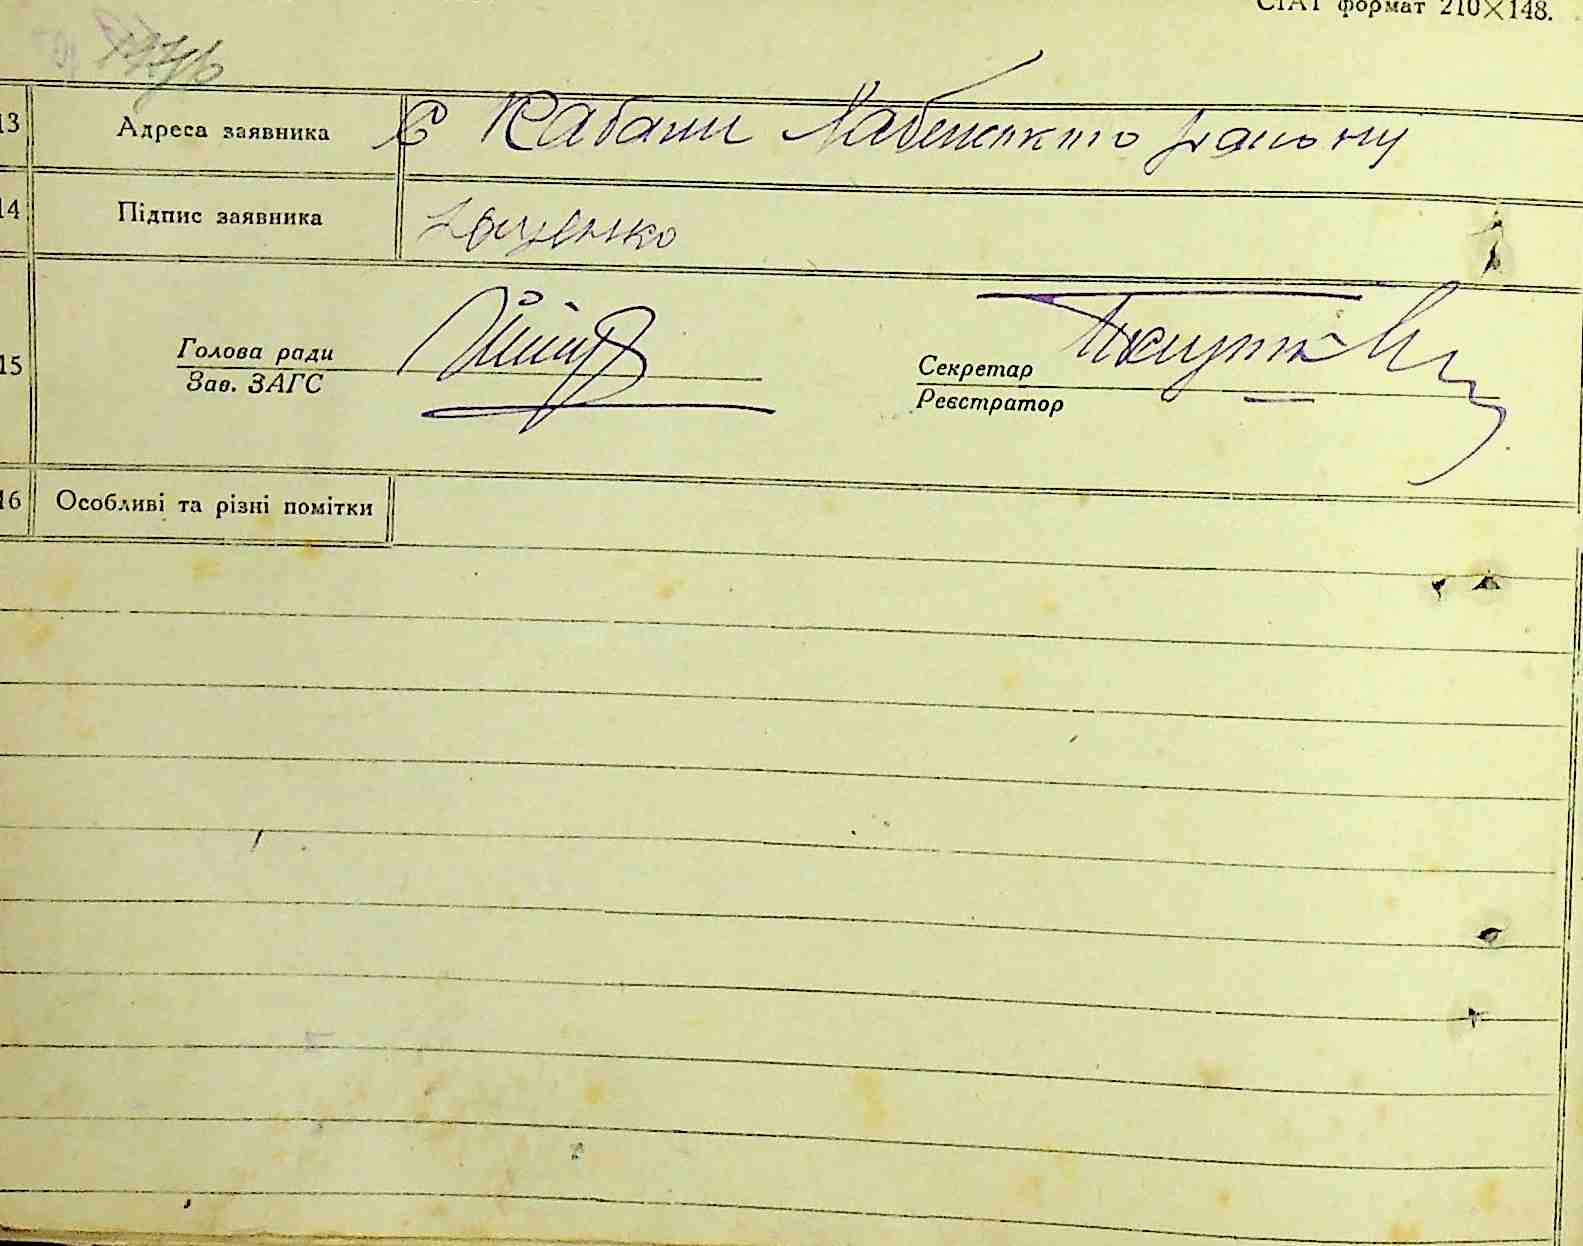 СТАТ формат 210×148.
13 Адреса заявника С Кабани Лабенського району
14 Підпис заявника Яценко
15 Голова ради
Зав. ЗАГС
Секретар
Реєстратор
16 Особливі та різні помітки